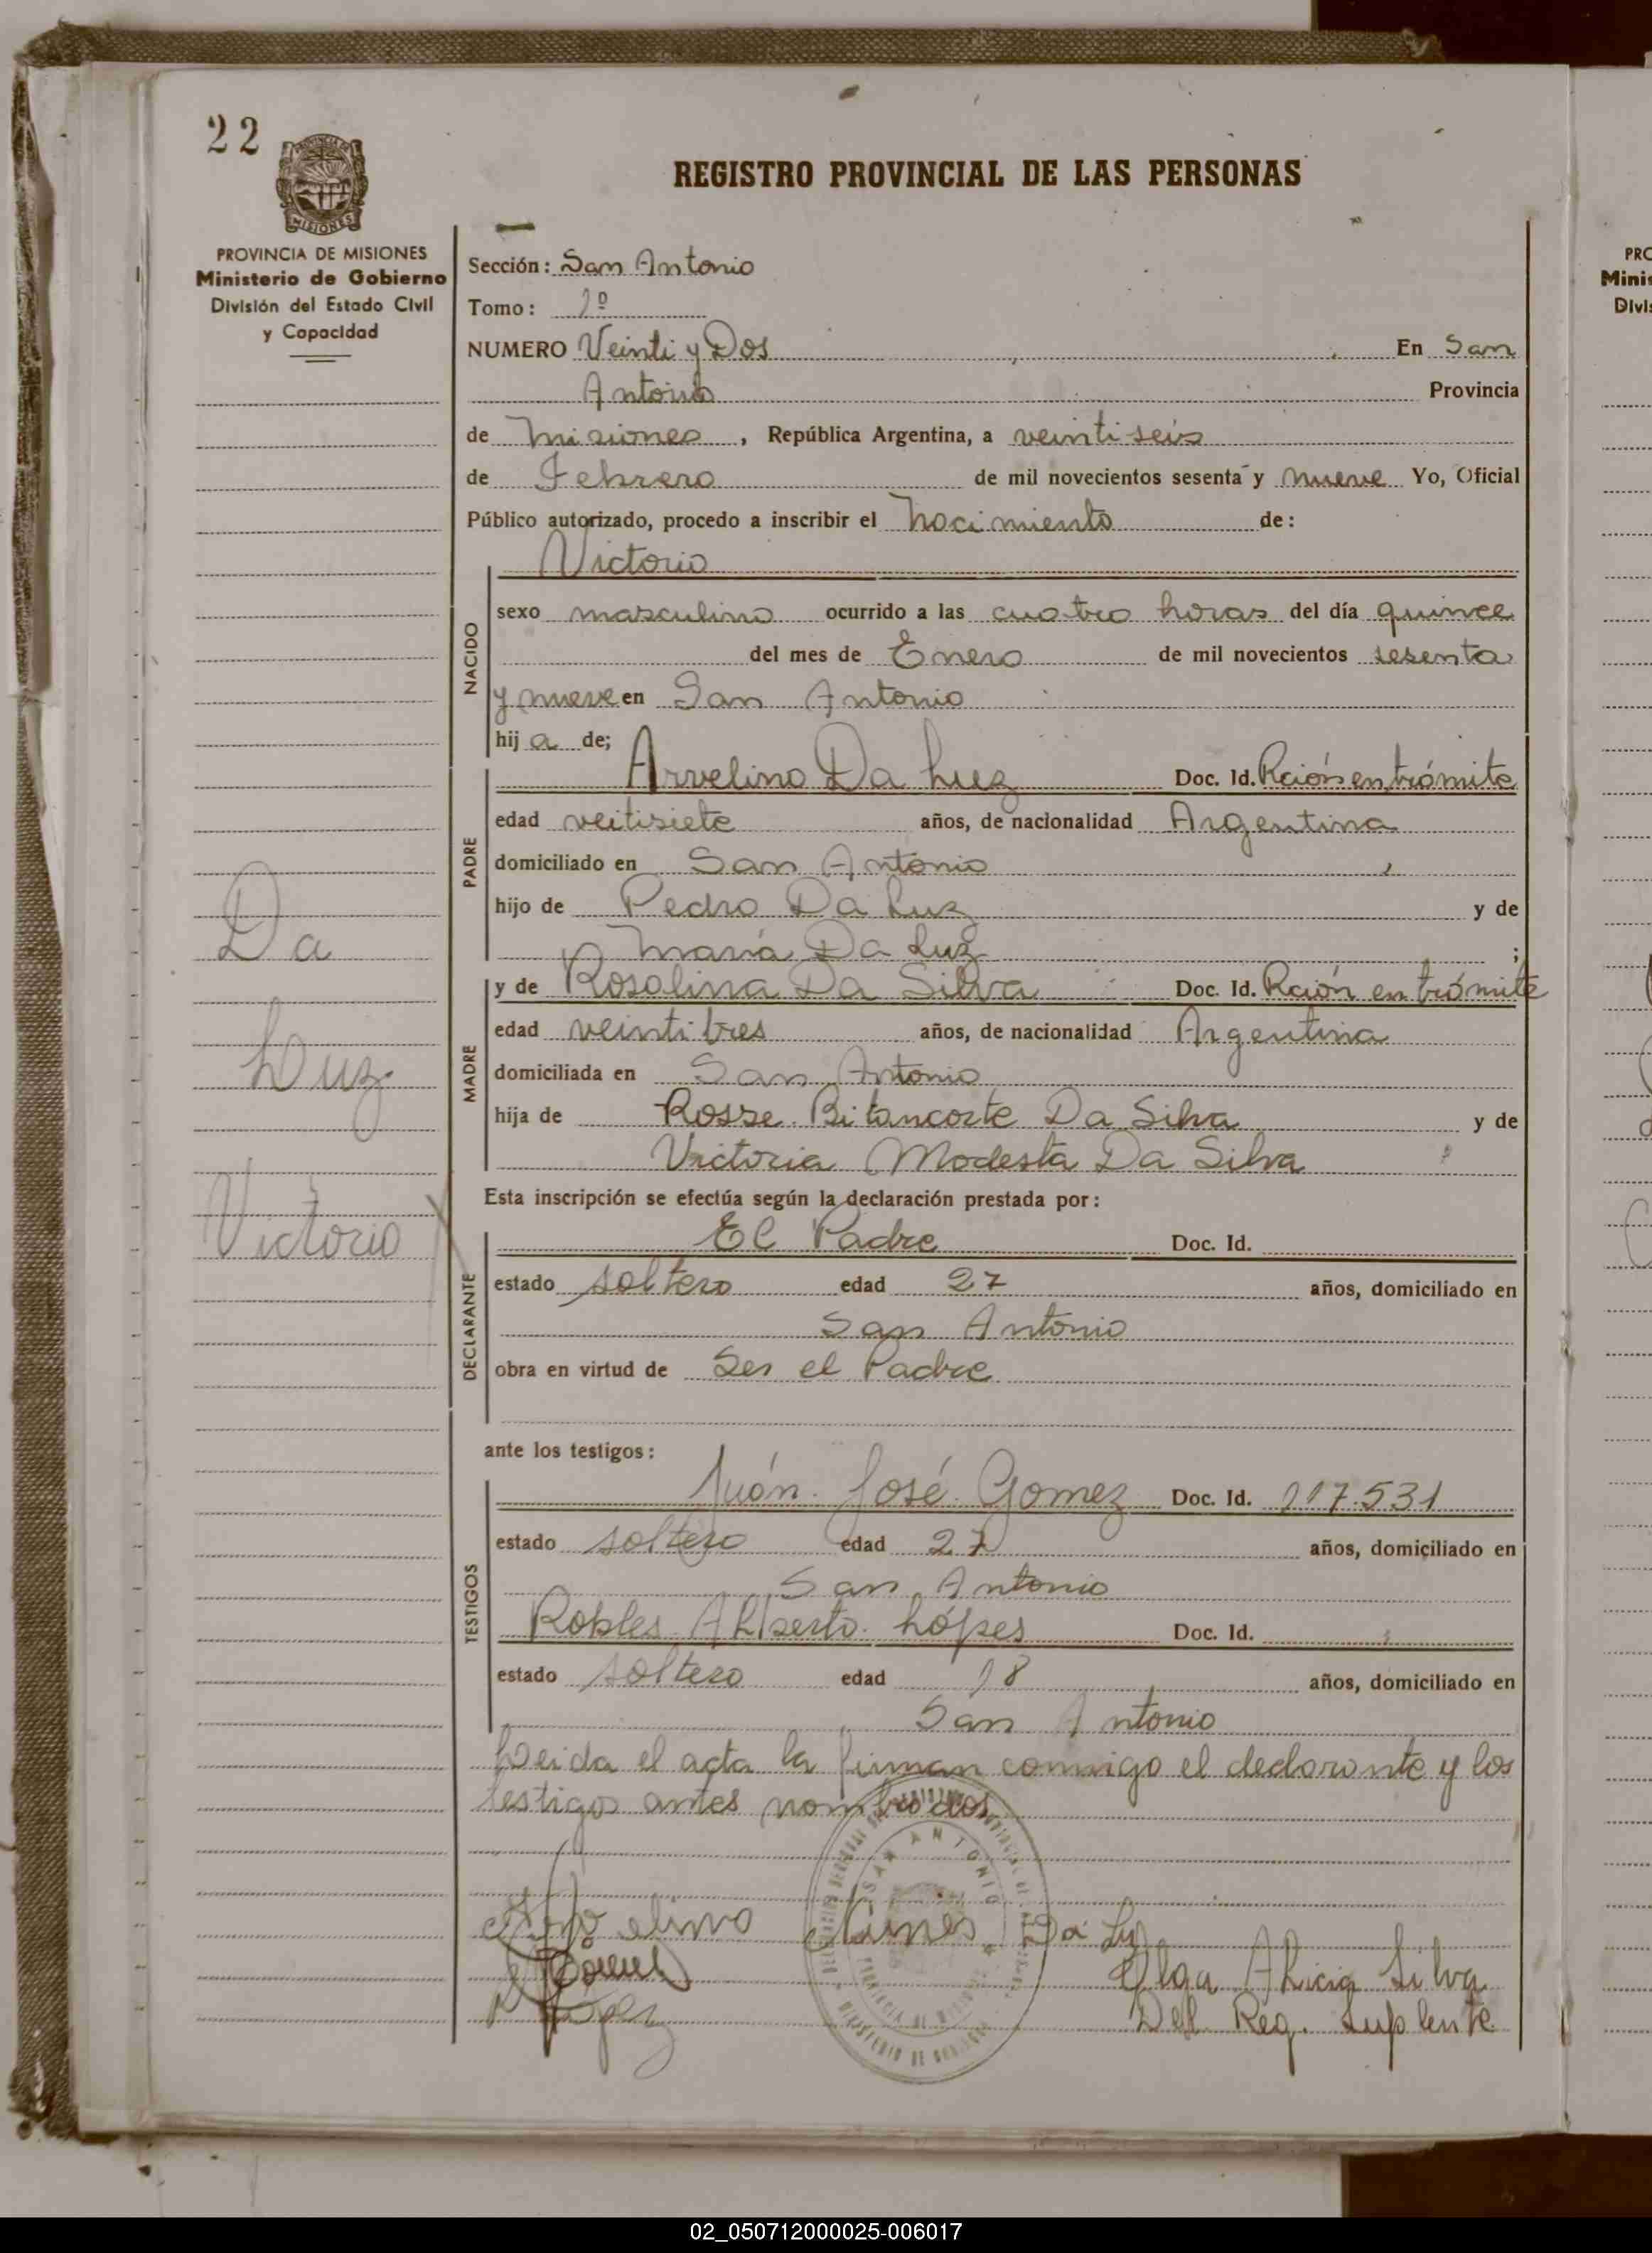 22
MISIONES
REGISTRO PROVINCIAL DE LAS PERSONAS
PROVINCIA DE MISIONES
Ministerio de Gobierno
División del Estado Civil
y Capacidad
Sección: San Antonio
Tomo: 1º
NUMERO Veinti y Dos En San
Antonio Provincia
de Misiones, República Argentina, a veinti seis
de Febrero de mil novecientos sesenta y nueve Yo, Oficial
Público autorizado, procedo a inscribir el nacimiento de:
Victorio
NACIDO
sexo masculino ocurrido a las cuatro horas del día quince
del mes de Enero de mil novecientos sesenta
y nueve en San Antonio
hij a de;
PADRE
Arvelino Da Luz Doc. Id. Rción en trámite
edad veitisiete años, de nacionalidad Argentina
domiciliado en San Antonio
hijo de Pedro Da Luz y de
María Da Luz ;
MADRE
y de Rosalina Da Silva Doc. Id. Rción en trámite
edad veinti tres años, de nacionalidad Argentina
domiciliada en San Antonio
hija de Rosse Bitancorte Da Silva y de
Victoria Modesta Da Silva
Da
Luz
Victorio
Esta inscripción se efectúa según la declaración prestada por:
DECLARANTE
El Padre Doc. Id.
estado soltero edad 27 años, domiciliado en
San Antonio
obra en virtud de Ser el Padre
ante los testigos:
TESTIGOS
Juán José Gomez Doc. Id. 117.531
estado soltero edad 27 años, domiciliado en
San Antonio
Robles Alberto Lópes Doc. Id.
estado soltero edad 18 años, domiciliado en
San Antonio
Leida el acta la firman conmigo el declarante y los
testigos antes nombrados
SAN ANTONIO
MINISTERIO DE GOBIERNO
Arvelino Nunes Da Luz
Olga Alicia Silva
Del. Reg. Suplente
PRO
Minis
Divi
02_050712000025-006017